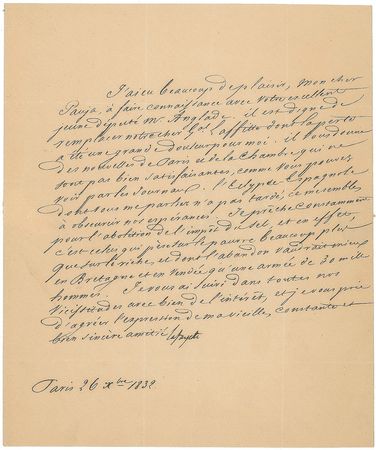 J'ai eu beaucoup de plaisir, mon cher
Pauja, à faire connaissance avec votre excellent
jeune député Mr Anglade. il est digne de
remplacer notre cher Gal Laffitte dont la perte
a été une grande douleur pour moi. il vous donne
des nouvelles de Paris et de la Chambre qui ne
sont pas bien satisfaisantes, comme vous pouvez
voir par les Journaux. l' Espagnole
dont vous me parlez n'a pas tardé, ce me semble,
à obscurcir nos espérances. Je prêche constamment
pour l'abolition de l'impôt du Sel, et en effet,
c'est celui qui pèse sur le pauvre beaucoup plus
que sur le riche, et dont l'abandon vaudrait mieux
en Bretagne et en Vendée qu'une armée de 30 mille
hommes. Je vous ai suivi dans toutes nos
vicissitudes avec bien de l'intérêt, et je vous prie
d'agréer l'expression de ma vieille, constante et
bien sincère amitié Lafayette
Paris 26 Xbre 1832